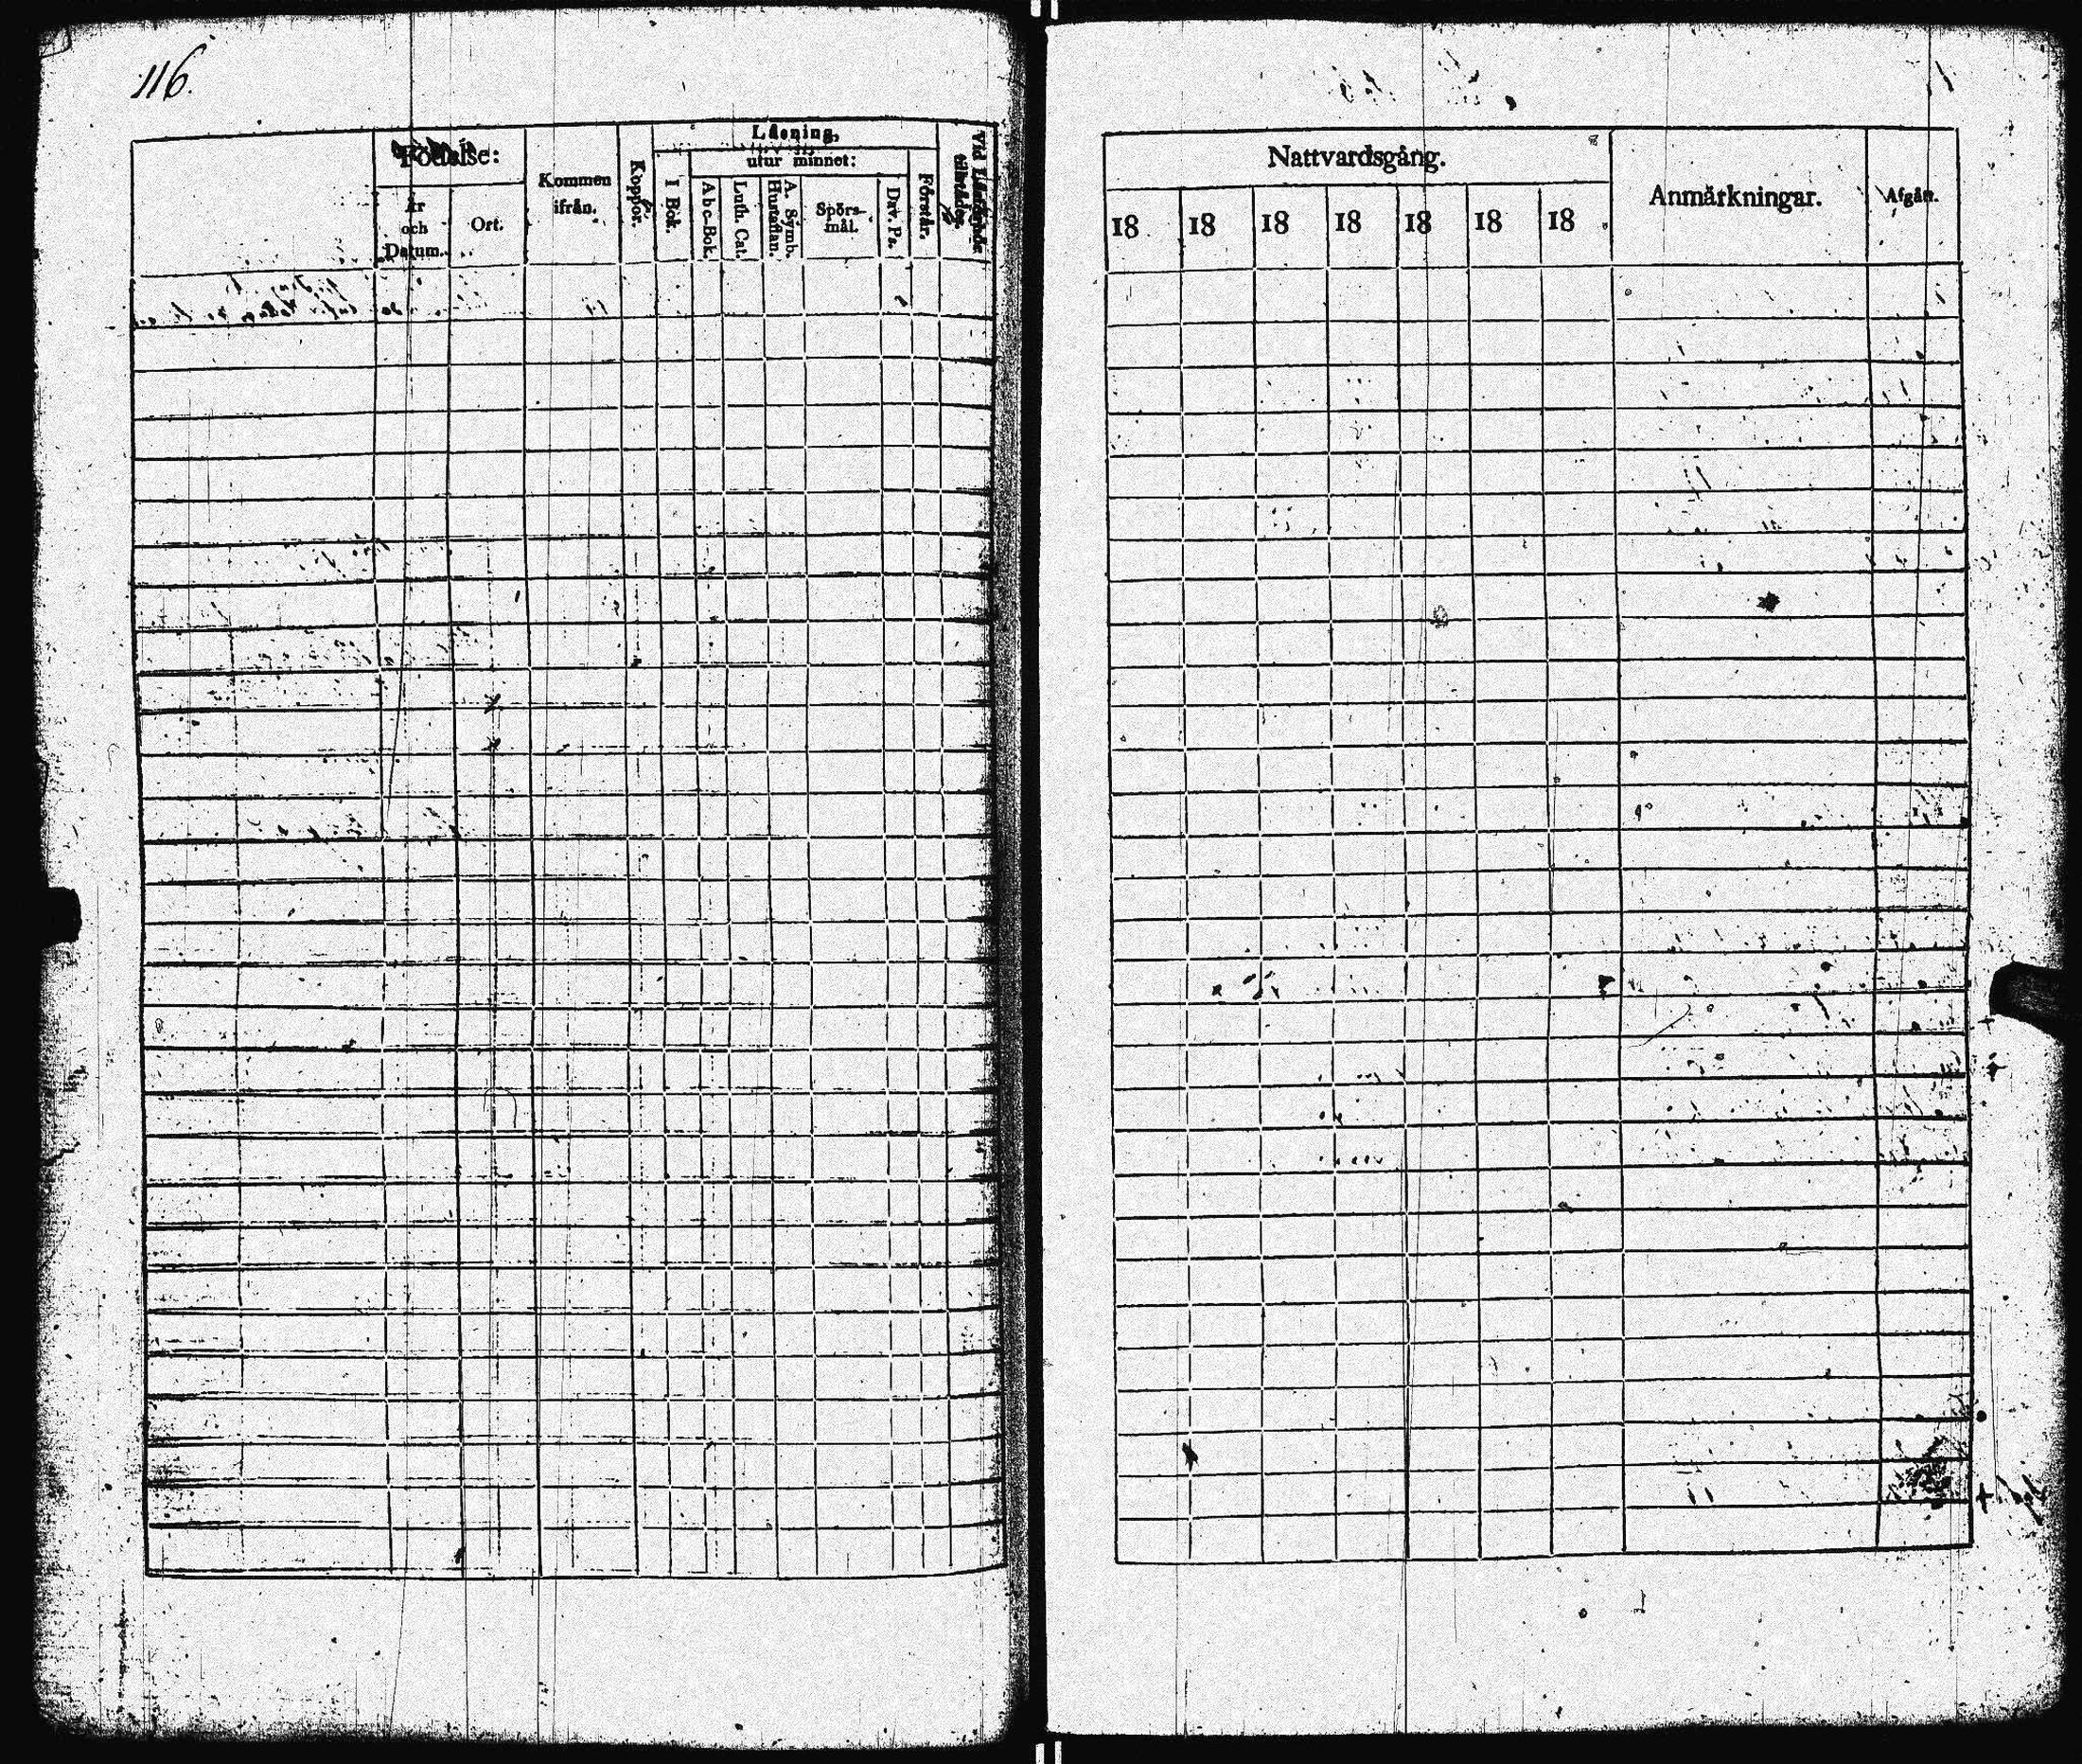 116.
Födelse:
År och Datum.
Ort.
Kommen ifrån.
Koppor.
Läsning,
I Bok.
utur minnet:
A b c-Bok.
Luth. Cat.
A. Symb. Hustaflan.
Spörs-mål.
Dav. Ps.
Förstår.
Vid Läseförhör tillstädes.
Nattvardsgång.
18 18 18 18 18 18 18
Anmärkningar.
Afgått.